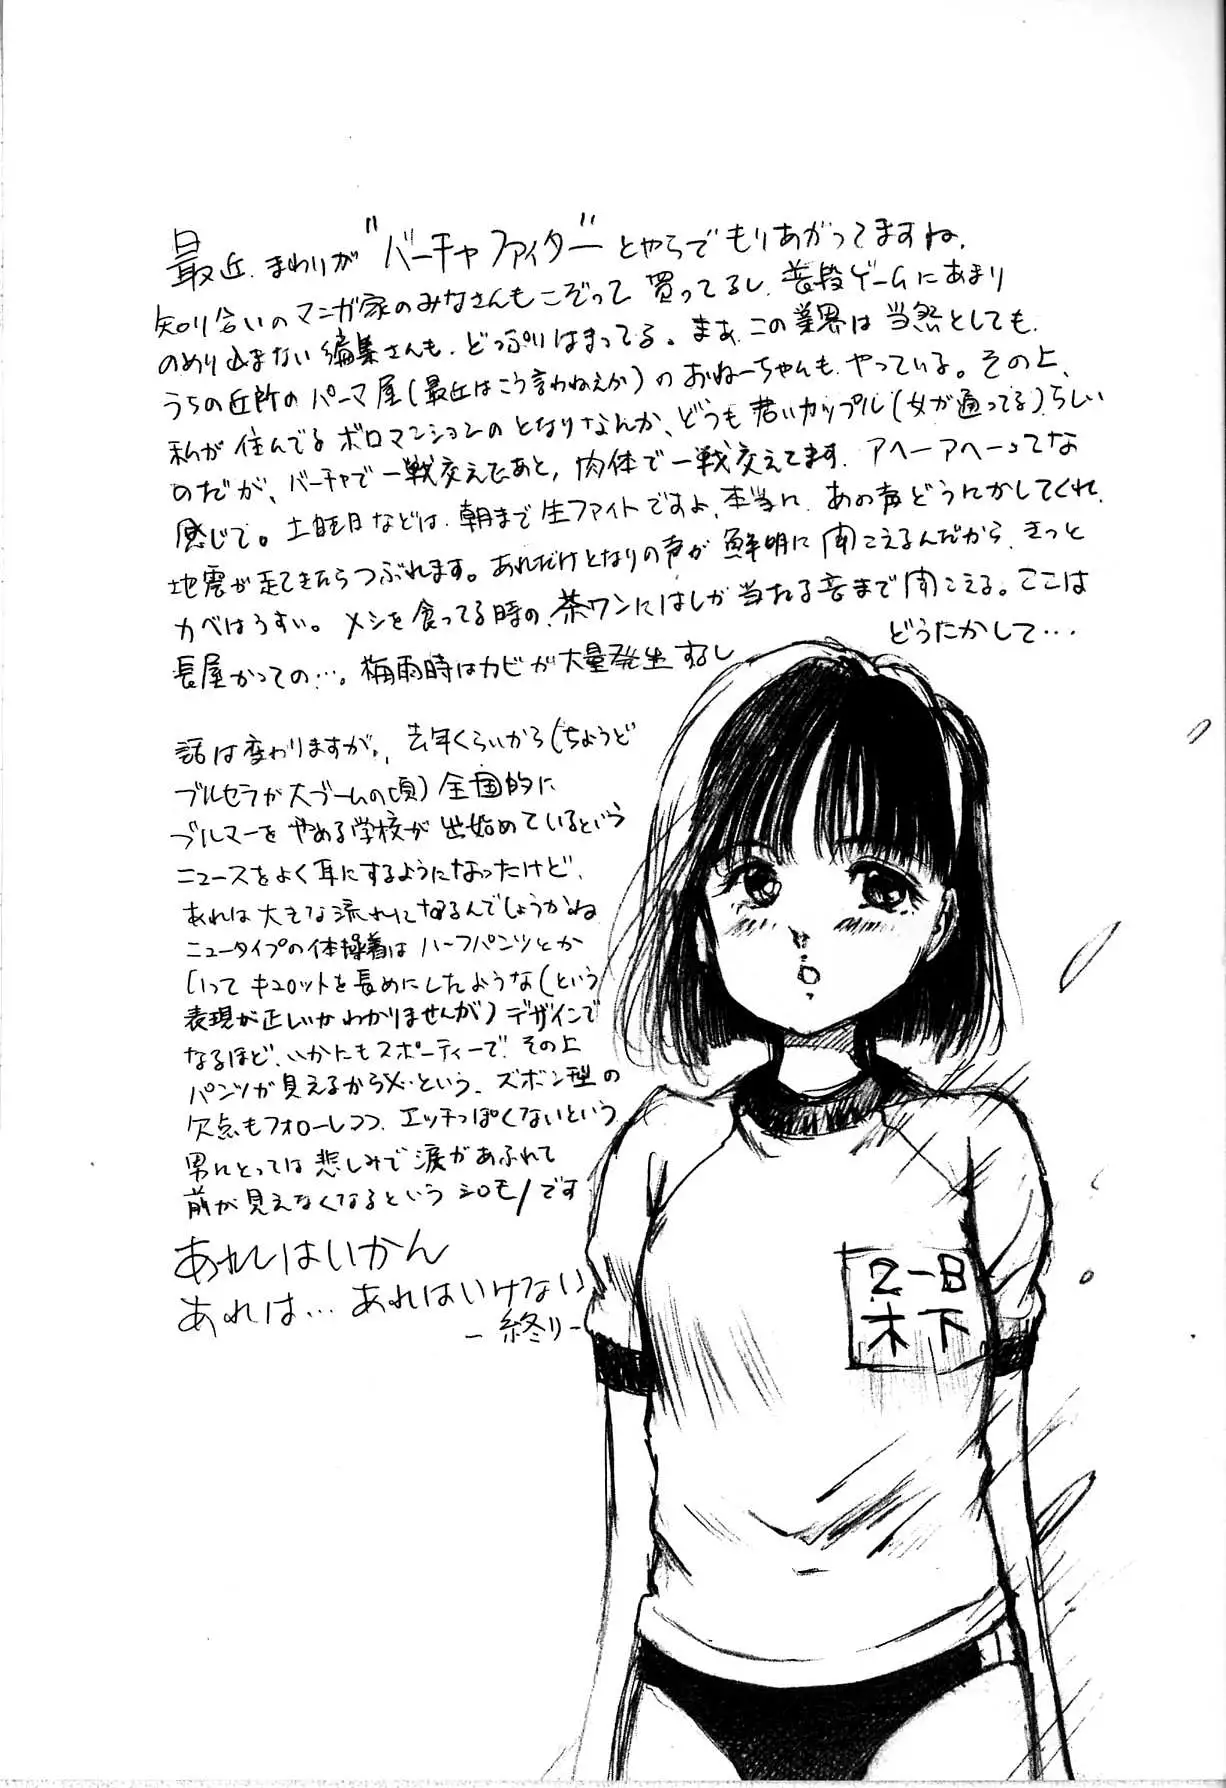 最近、まわりが"バーチャファイター"とやらでもりあがってますね。
知り合いのマンガ家のみなさんもこぞって買ってるし、普段ゲームにあまり
のめり込まない編集さんも、どっぷりはまってる。まあ、この業界は当然としても、
うちの近所のパーマ屋(最近はこう言わねえか)のおねーちゃんも、やっている。その上、
私が住んでるボロマンションのとなりなんか、どうも若いカップル(女が通ってる)らしい
のだが、バーチャで一戦交えたあと、肉体で一戦交えてます。アヘーアヘーってな
感じで。土曜日などは、朝まで生ファイトですよ、本当に。あの声どうにかしてくれ。
地震が起てきたらつぶれます。あれだけとなりの声が鮮明に聞こえるんだから、きっと
カベはうすい。メシを食ってる時の、茶ワンにはしが当たる音まで聞こえる。ここは
長屋かっての…。梅雨時はカビが大量発生するし
どうたかして…
話は変わりますが、去年くらいから(ちょうど
ブルセラが大ブームの頃)全国的に
ブルマーをやめる学校が出始めているという
ニュースをよく耳にするようになったけど、
あれは大きな流れになるんでしょうかね
ニュータイプの体操着はハーフパンツとか
いってキュロットを長めにしたような(という
表現が正しいかわかりませんが)デザインで
なるほど、いかにもスポーティーで、その上
パンツが見えるから×…という、ズボン型の
欠点もフォローしつつ、エッチっぽくないという
男にとっては悲しみで涙があふれて
前が見えなくなるというシロモノです
あれはいかん
あれは…あれはいけない
―終り―
2-B
木下